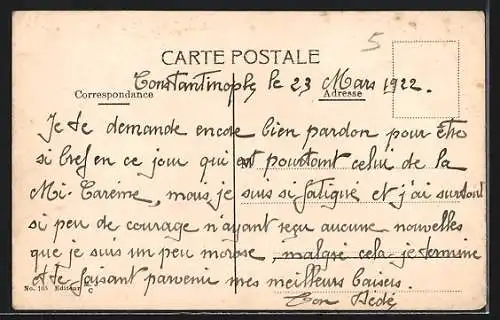 5
CARTE POSTALE
Constantinople, le 23 Mars 1922.
Correspondance
Adresse
Je te demande encore bien pardon pour être
si bref en ce jour qui est pourtant celui de la
Mi-Carême, mais je suis si fatigué et j'ai surtout
si peu de courage n'ayant reçu aucune nouvelles
que je suis un peu morose, malgré cela je termine
et te faisant parvenir mes meilleurs baisers.
Ton Dédé
No. 165 Editeur C